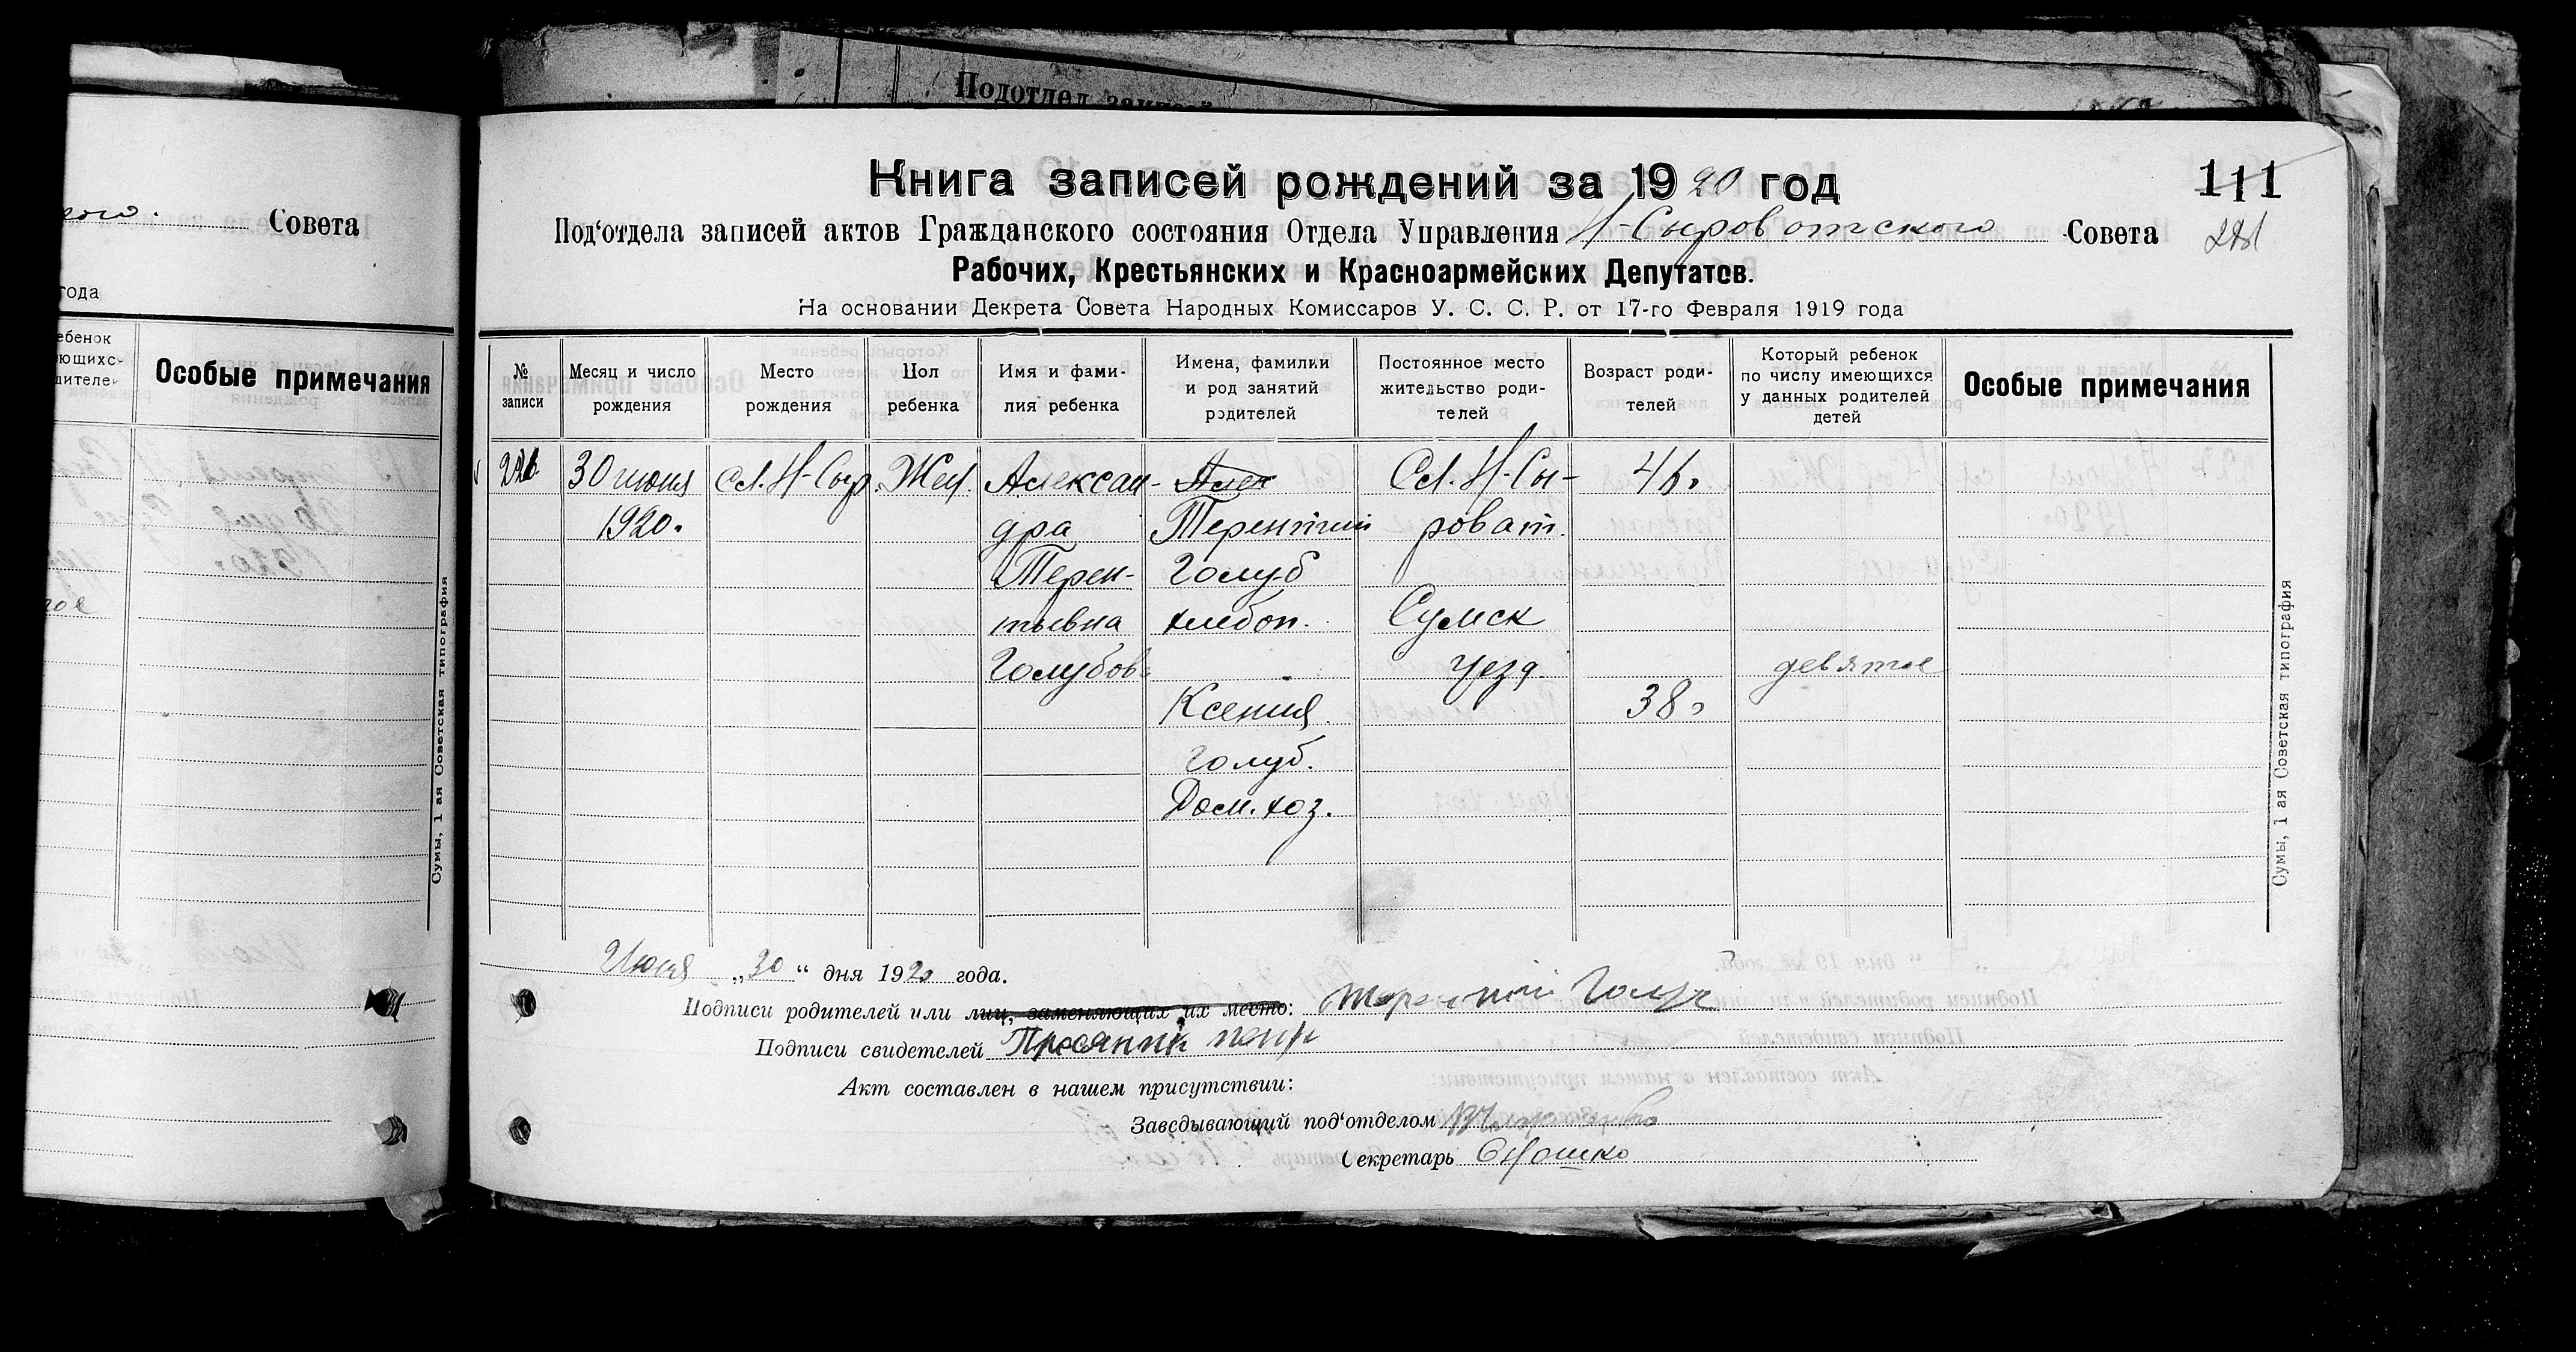 Подотдел записей
Книга записей рождений за 1920 год
111
Под‘отдела записей актов Гражданского состояния Отдела Управления Н-Сыроватского Совета
Рабочих, Крестьянских и Красноармейских Депутатов.
На основании Декрета Совета Народных Комиссаров У. С. С. Р. от 17-го Февраля 1919 года
Совета
года
Особые примечания
Сумы, 1 ая Советская типография
№ записи
Месяц и число рождения
Место рождения
Пол ребенка
Имя и фами-лия ребенка
Имена, фамилии и род занятий родителей
Постоянное место жительство роди-телей
Возраст роди-телей
Который ребенок по числу имеющихся у данных родителей детей
Особые примечания
30 июня
1920.
Сл. Н-Сыр.
Жен.
Алексан-
дра
Терен-
тьевна
Голубов
Терентий
Голуб
хлебоп.
Ксения
Голуб.
Дом. хоз.
Сл. Н-Сы-
роват.
Сумск
уезд
46.
38
девятое
Сумы, 1 ая Советская типография
Июня „30“ дня 1920 года.
Подписи родителей или лиц, заменяющих их место: Терентий Голуб
Подписи свидетелей
Акт составлен в нашем присутствии:
Заведывающий под‘отделом
Секретарь